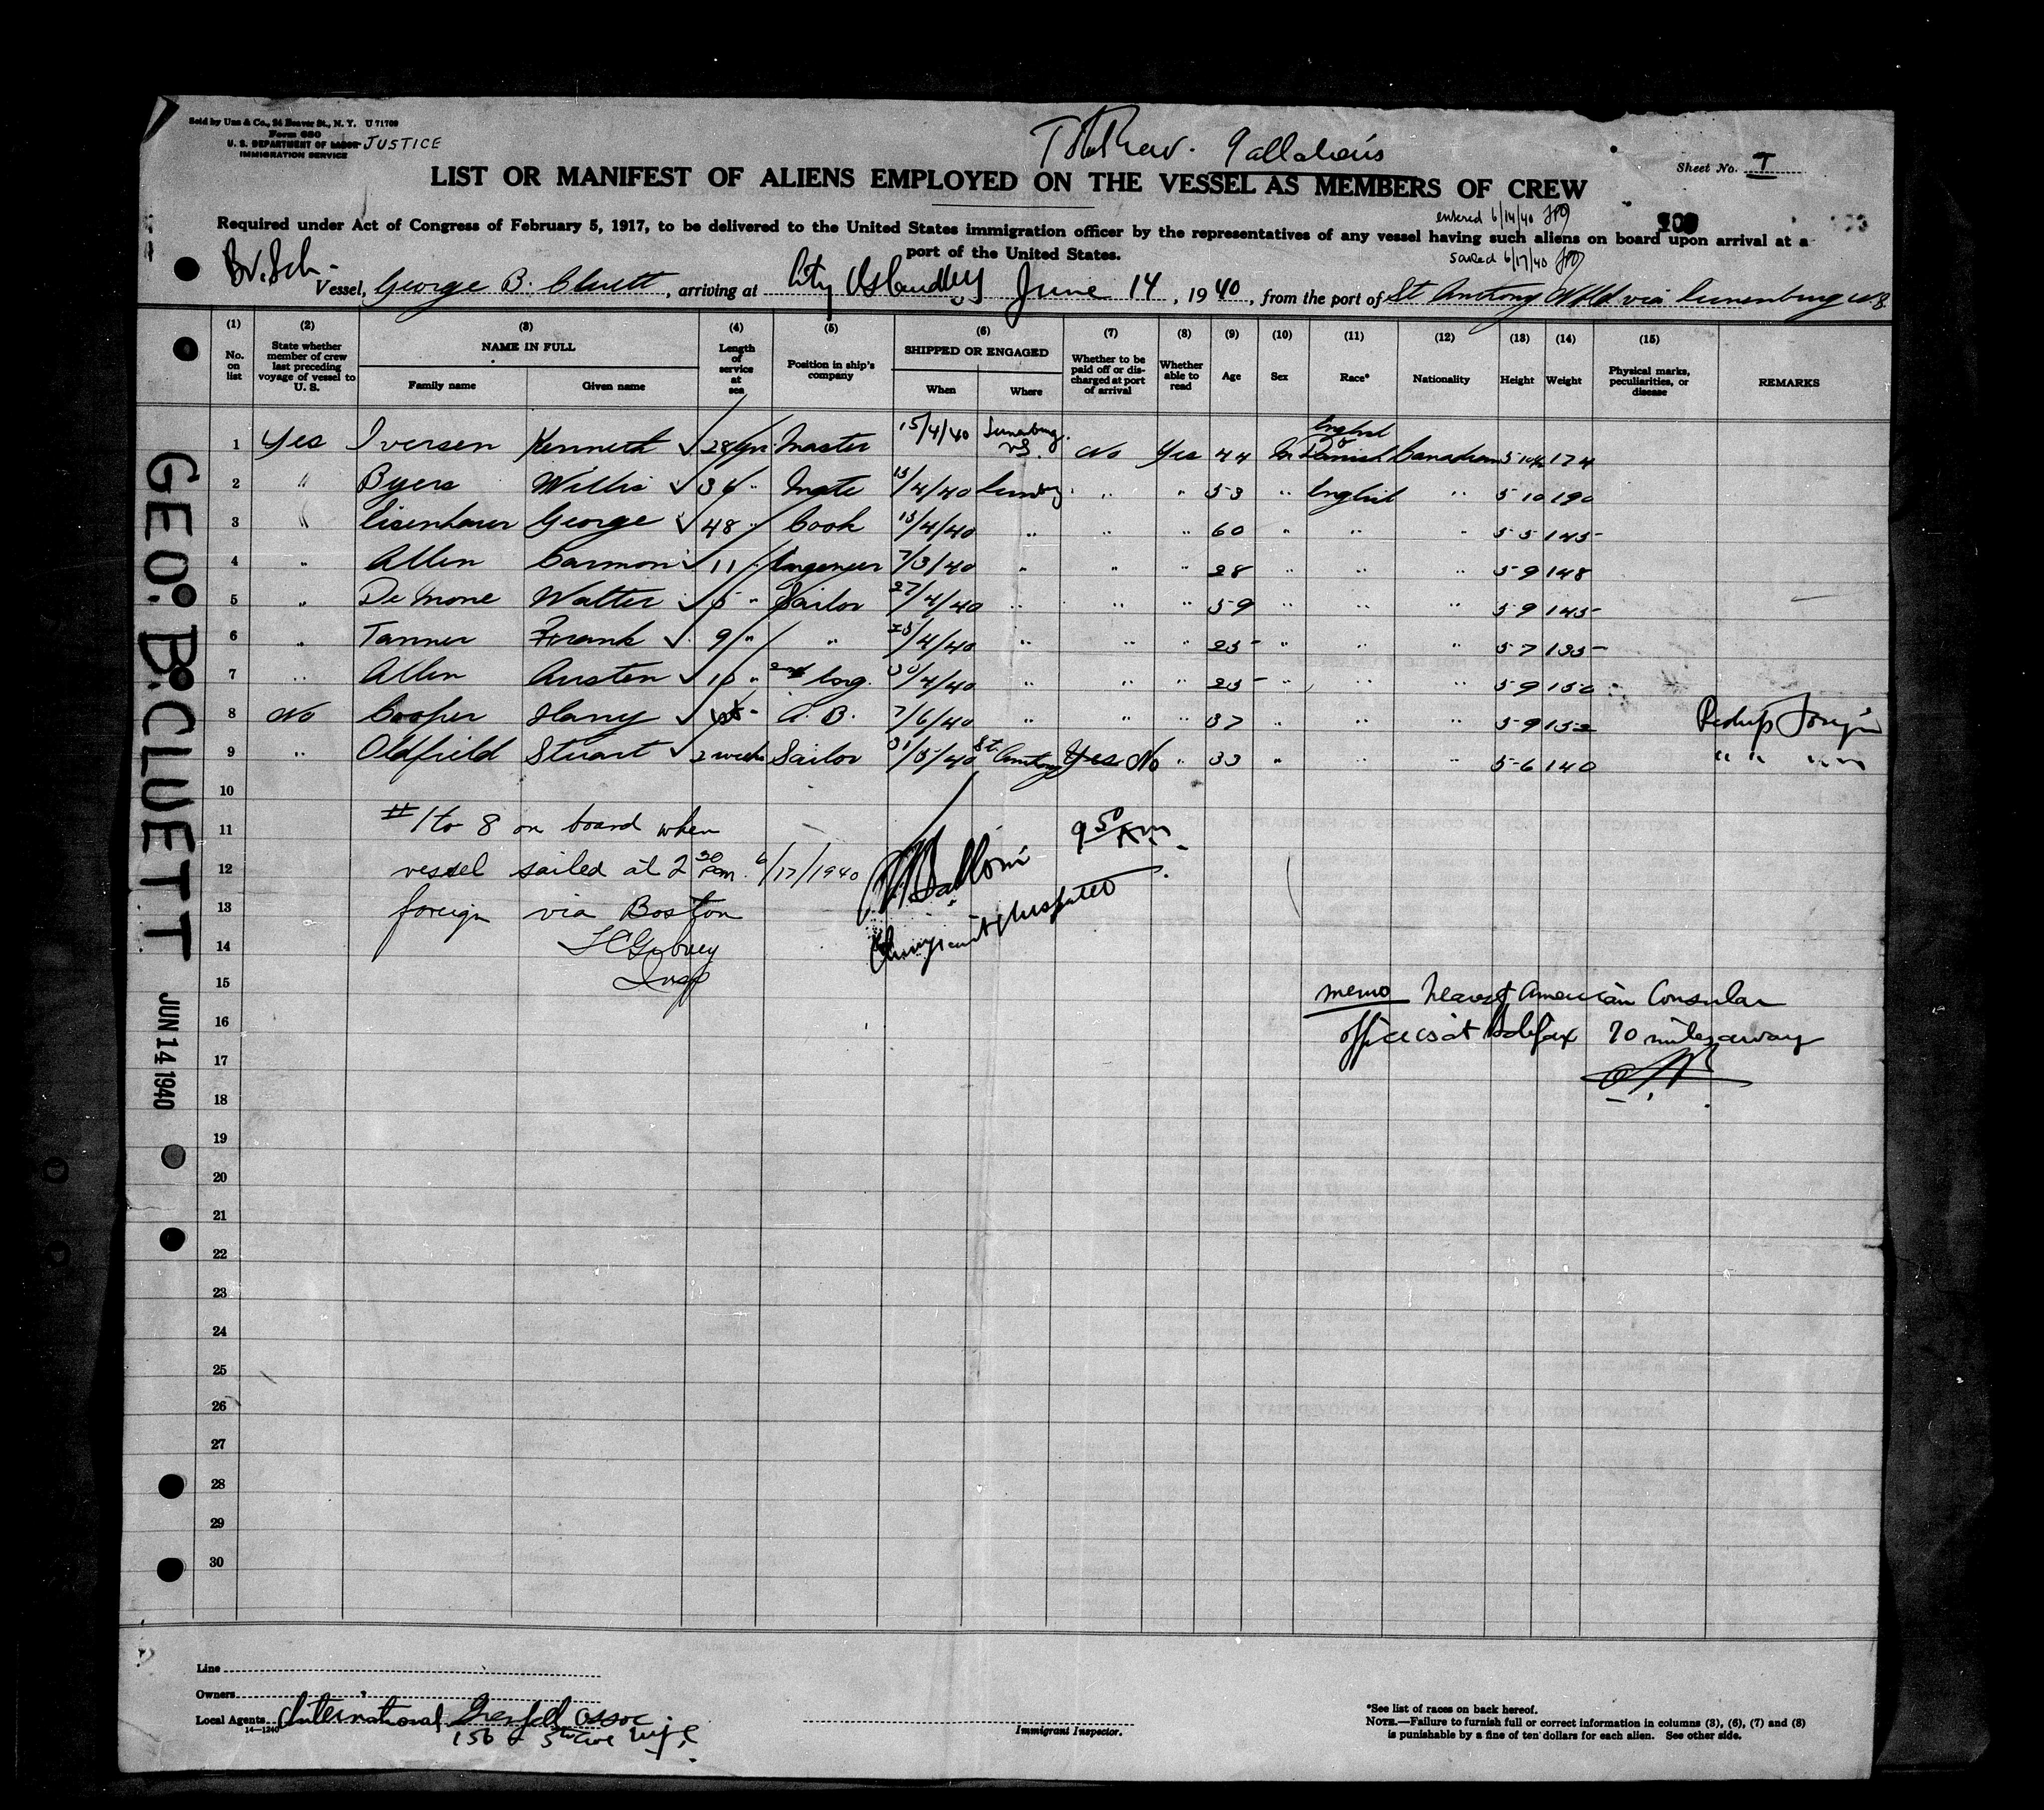 Sold by Unz & Co., 24 Beaver St., N. Y. U 71709
Form 680
U. S. DEPARTMENT OF LABOR JUSTICE
IMMIGRATION SERVICE
Sheet No. I
LIST OR MANIFEST OF ALIENS EMPLOYED ON THE VESSEL AS MEMBERS OF CREW
entered 6/14/40
Required under Act of Congress of February 5, 1917, to be delivered to the United States immigration officer by the representatives of any vessel having such aliens on board upon arrival at a
port of the United States.
sailed 6/17/40
Br. Sch.
Vessel, George B. Cluett, arriving at City Island NY June 14, 1940, from the port of St Anthony Nfld via Lunenburg N.S.
(1) (2) (3) (4) (5) (6) (7) (8) (9) (10) (11) (12) (13) (14) (15)
No. on list State whether member of crew last preceding voyage of vessel to U. S. NAME IN FULL Family name Given name Length of service at sea Position in ship's company SHIPPED OR ENGAGED When Where Whether to be paid off or discharged at port of arrival Whether able to read Age Sex Race* Nationality Height Weight Physical marks, peculiarities, or disease REMARKS
1 Yes Iversen Kenneth ✓ 28 yrs Master 15/4/40 Lunenburg N.S. No Yes 44 M English Danish Canadian 5 10½ 174
2 " Byers Willis ✓ 36 " Mate 15/4/40 " " 53 " English " 5 10 190
3 " Eisenhauer George ✓ 48 " Cook 15/4/40 " " " 60 " " " 5 5 145
4 " Allen Carmon ✓ 11 " Engineer 7/3/40 " " " 28 " " " 5 9 148
5 " De Mone Walter ✓ 5 " Sailor 27/4/40 " " " 59 " " " 5 9 145
6 " Tanner Frank ✓ 9 " " 25/4/40 " " " 25 " " " 5 7 135
7 " Allen Austen ✓ 10 " 2nd Eng. 30/4/40 " " " 25 " " " 5 9 150
8 No Cooper Harry ✓ 1st A. B. 7/6/40 " " " 37 " " " 5 9 152 Reship Foreign
9 " Oldfield Stuart ✓ 2 weeks Sailor 31/5/40 St. Anthony Yes No " 33 " " " 5 6 140 " "
10
11
12
13
14
15
16
17
18
19
20
21
22
23
24
25
26
27
28
29
30
#1 to 8 on board when
vessel sailed at 2 30 pm. 6/17/1940
foreign via Boston
Insp
9 50 Am
Immigrant Inspector
memo nearest American Consular
office is at Halifax 70 miles away
GEO. B. CLUETT
JUN 14 1940
Line
Owners
Local Agents International Grenfell Assoc
14—1240
156 5th Ave NYC
Immigrant Inspector.
*See list of races on back hereof.
NOTE.—Failure to furnish full or correct information in columns (3), (6), (7) and (8)
is punishable by a fine of ten dollars for each alien. See other side.